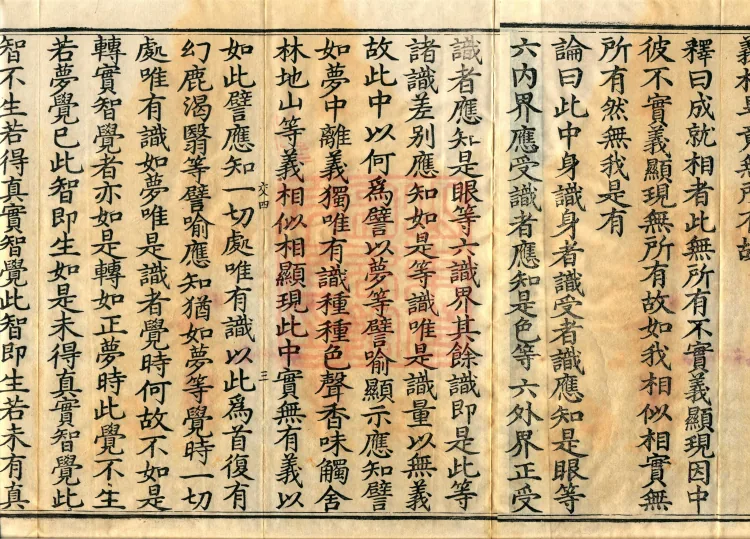 釋曰成就相者此無所有不實義顯現因中
彼不實義顯現無所有故如我相似相實無
所有然無我是有
論曰此中身識身者識受者識應知是眼等
六內界應受識者應知是色等六外界正受
識者應知是眼等六識界其餘識即是此等
諸識差别應知如是等識唯是識量以無義
故此中以何為譬以夢等譬喻顯示應知譬
如夢中離義獨唯有識種種色聲香味觸舍
林地山等義相似相顯現此中實無有義以
交四
三
如此譬應知一切處唯有識以此為首復有
幻鹿渴翳等譬喻應知猶如夢等覺時一切
處唯有識如夢唯是識者覺時何故不如是
轉實智覺者亦如是轉如正夢時此覺不生
若夢覺已此智即生如是未得真實智覺此
智不生若得真實智覺此智即生若未有真